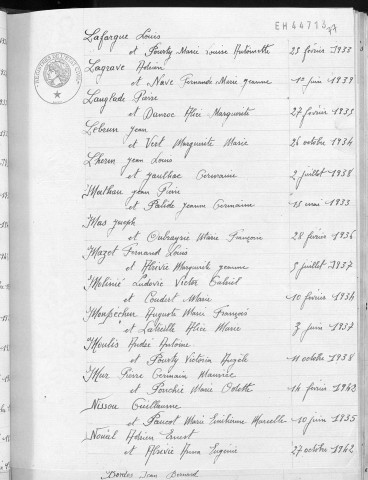 EH44713
Lafargue Louis
et Pourty Marie Louise Antoinette 25 février 1933
Lagrave Adrien
et Nave Fernande Marie Jeanne 1er juin 1939
Langlade Pierre
et Danroc Alice Marguerite 27 février 1935
Lebrun Jean
et Vert Marguerite Marie 26 octobre 1934
Lherm Jean Louis
et Gaulhac Germaine 2 juillet 1938
Mathieu Jean Pierre
et Jeanne Germaine 15 mai 1933
Mas Joseph
et Marie Françoise 28 février 1936
Mazet Fernand Louis
et Marguerite Jeanne 5 juillet 1937
Molinié Ludovic Victor Gabriel
et Coudert Marie 10 février 1934
Auguste Marie François
et Latreille Alice Marie 3 juin 1937
Moulis André Antoine
et Pourty Victorin Angèle 11 octobre 1938
Mur Pierre Germain Maurice
et Porchié Marie Odette 14 février 1942
Nissou Guillaume
et Paucot Marie Emilienne Marcelle 10 juin 1935
Nouail Adrien Ernest
et Anna Eugénie 27 octobre 1942
Bordes Jean Bernard